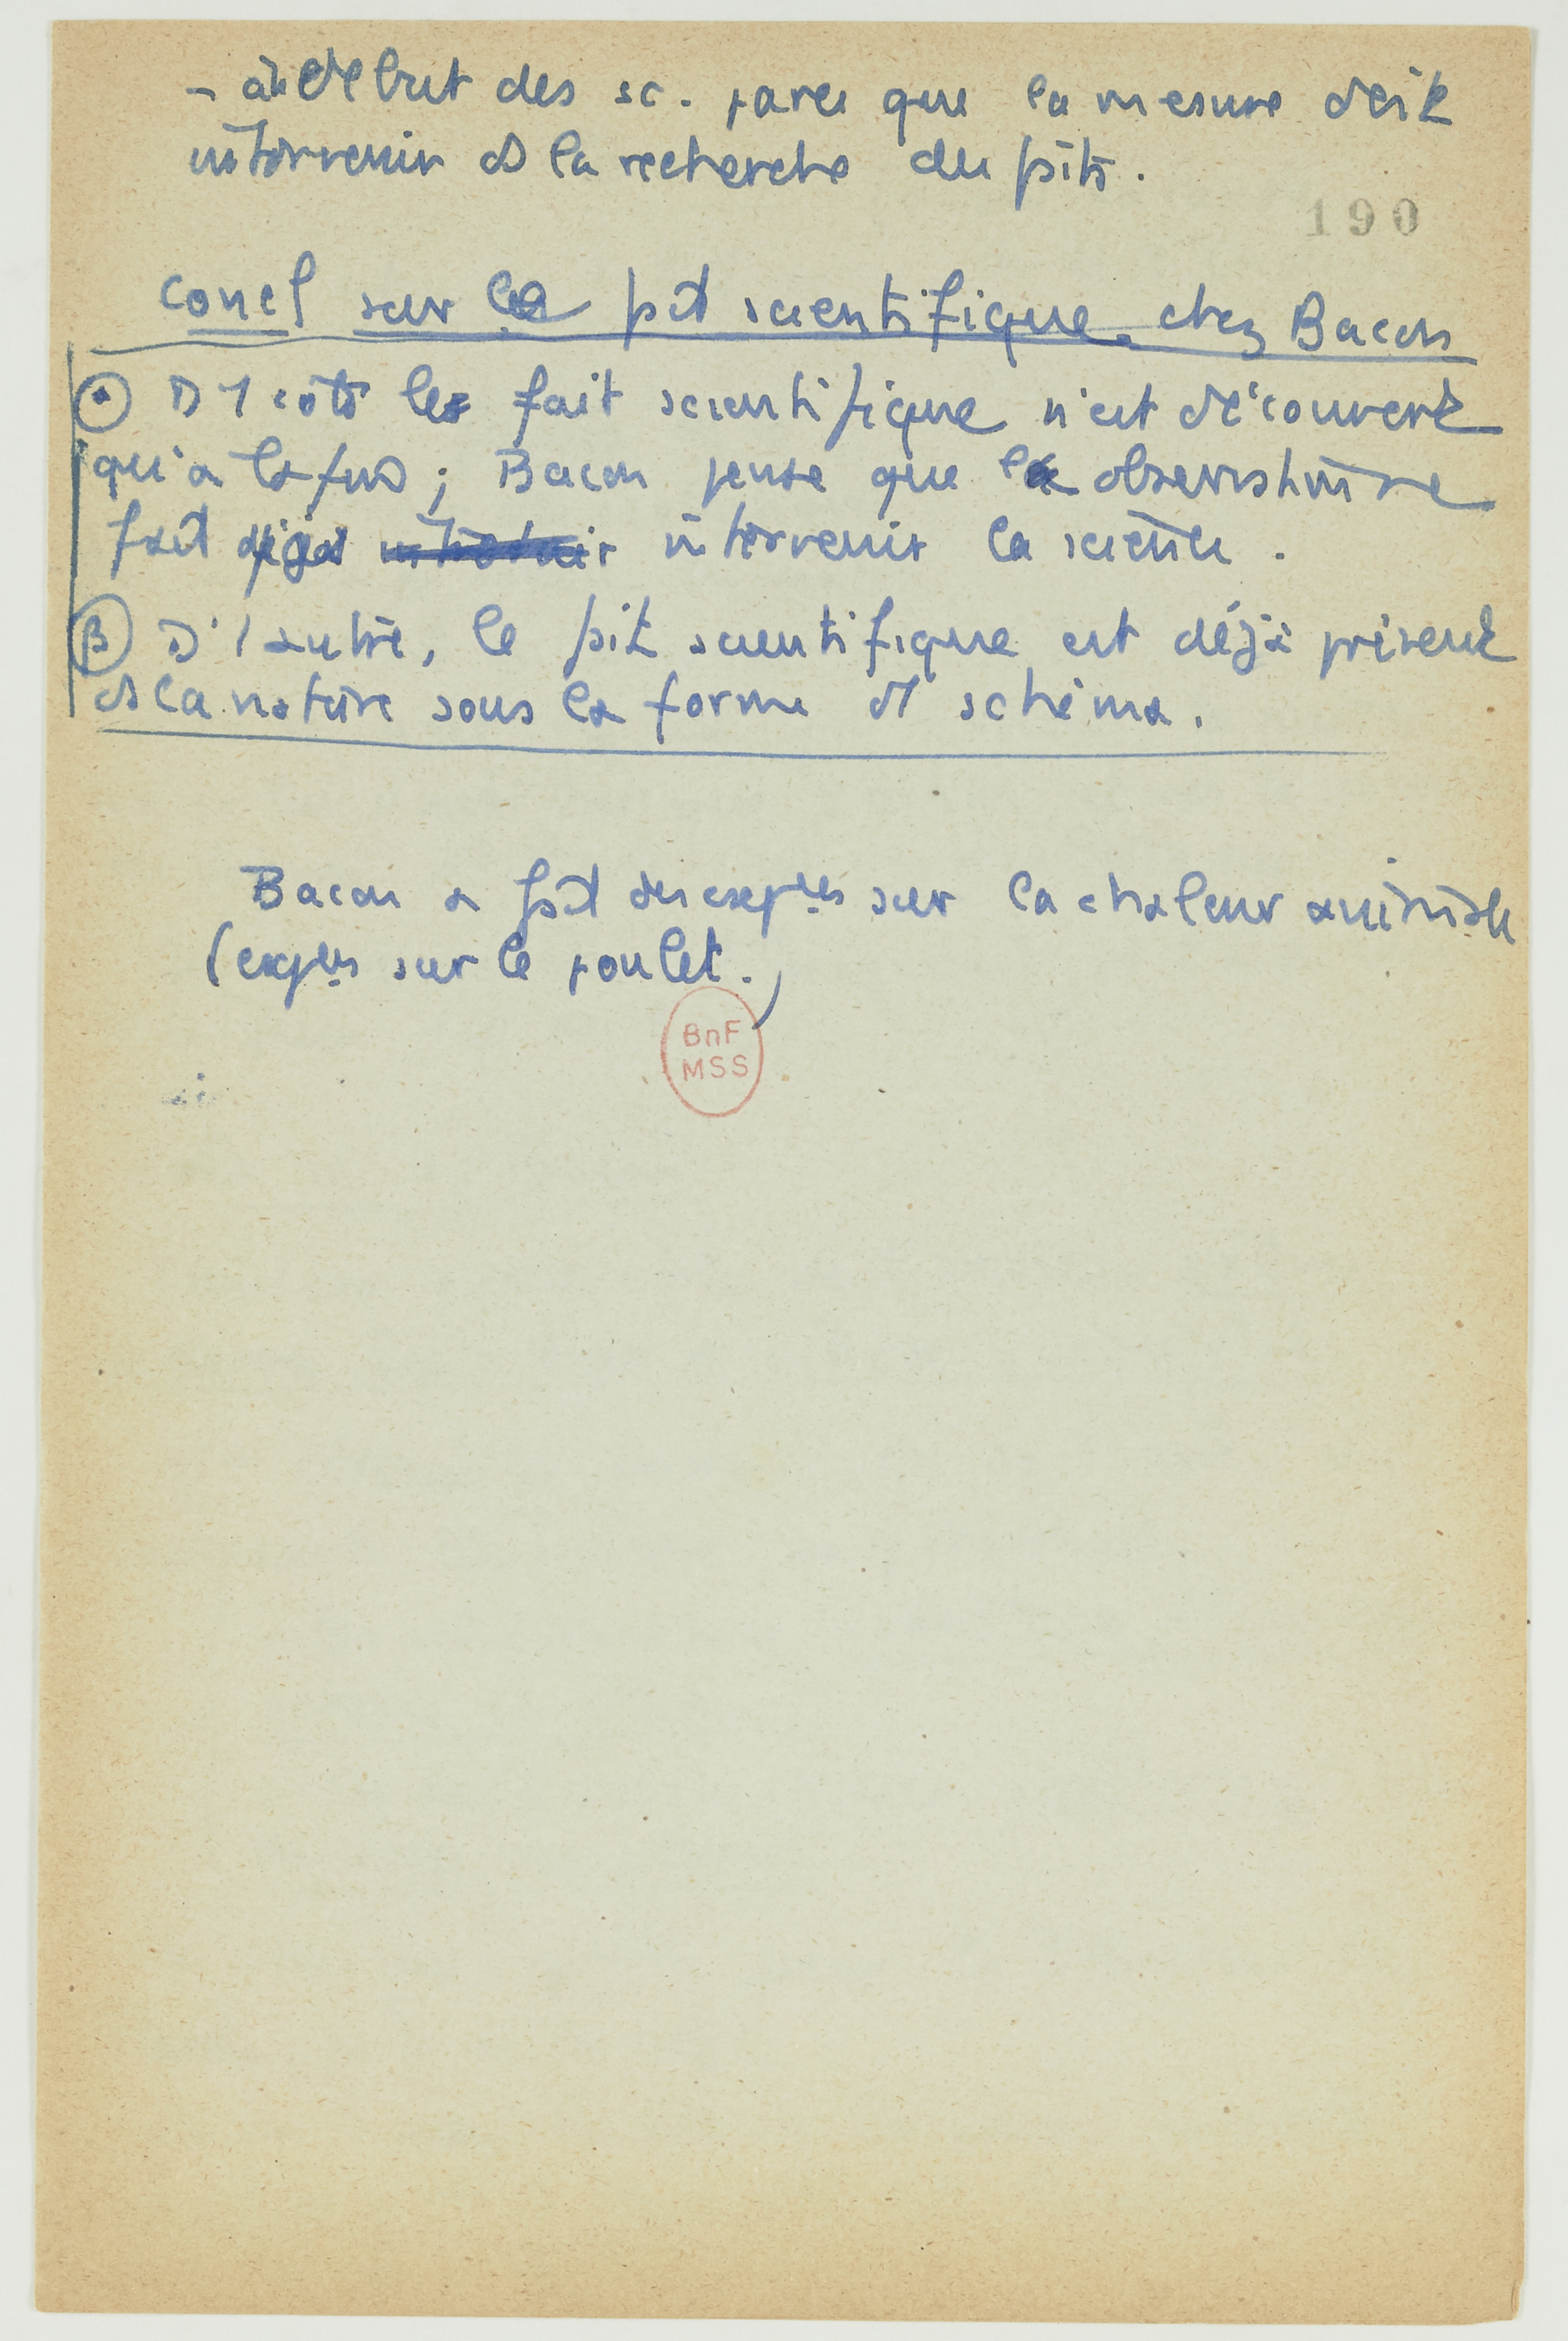 - au début des sc. parce que la mesure doit
intervenir ds la recherche du fait.
190
Concl sur le fait scientifique chez Bacon
α D'1 côté le fait scientifique n'est découvert
qu'à la fin ; Bacon pense que
fait déjà intervenir la science.
β D'1 autre, le fait scientifique est déjà présent
ds la nature sous la forme d'1 schéma.
Bacon a fait des expces sur la chaleur animale
(expces sur le poulet.)
BnF
MSS